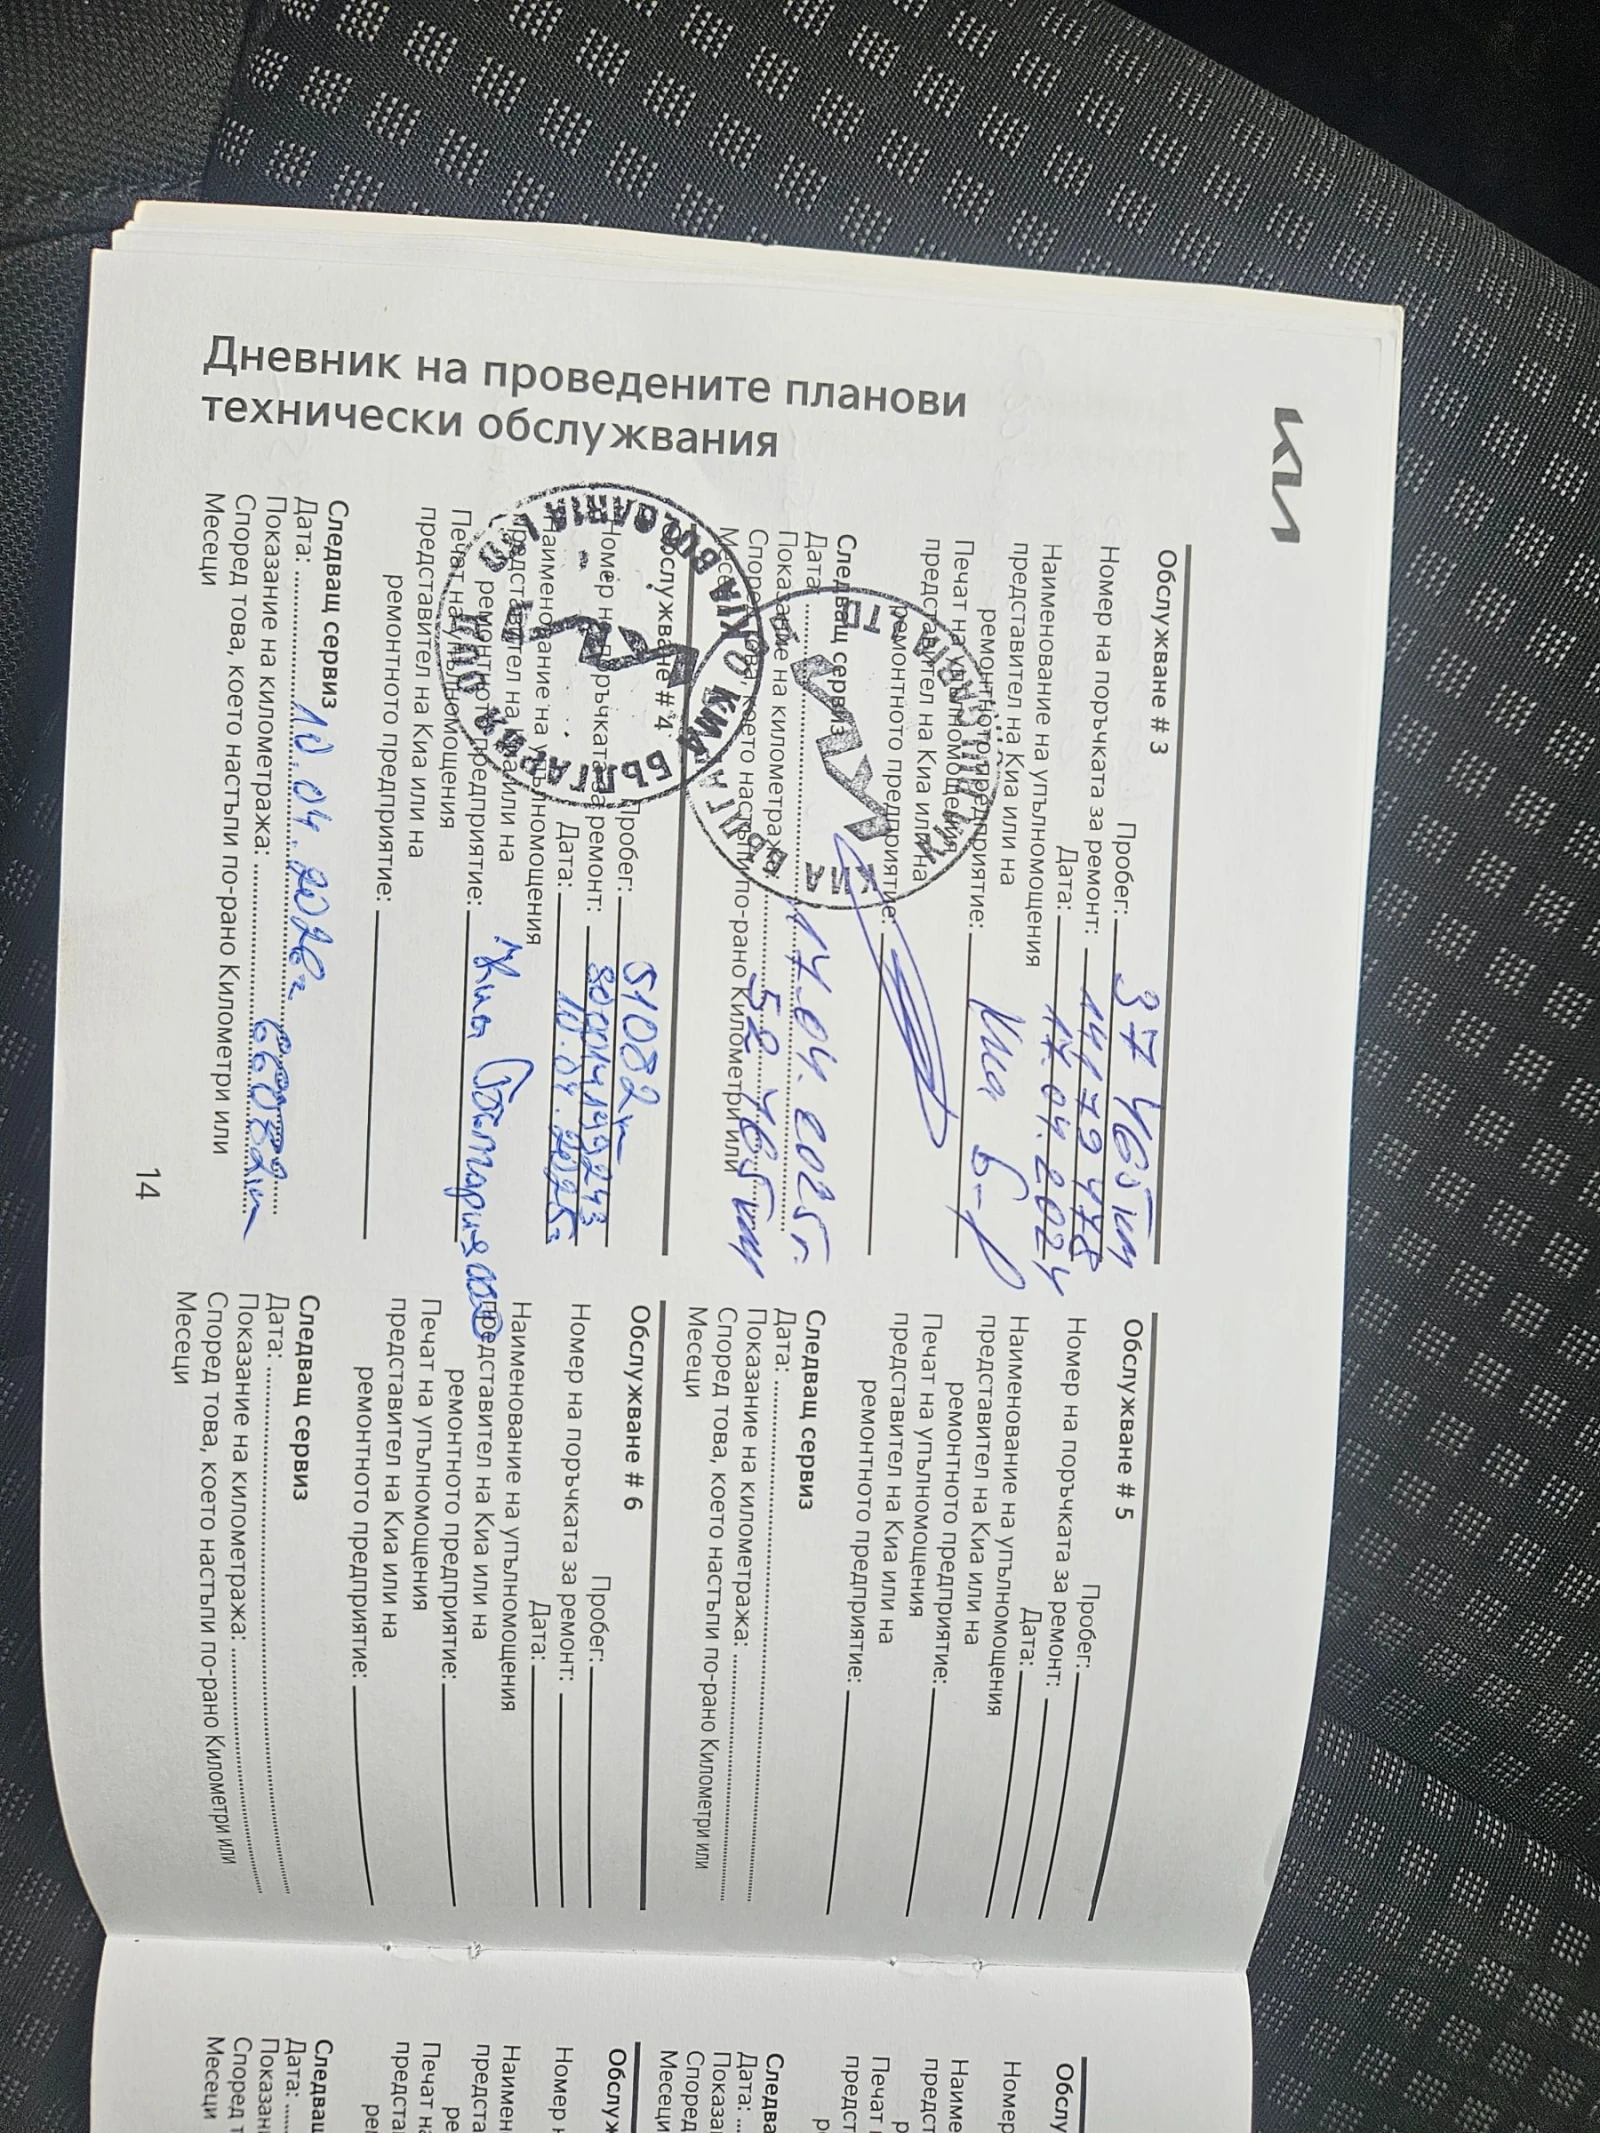 Дневник на проведените планови
технически обслужвания
KIA
Обслужване # 3
Пробег: 37 465 km
Номер на поръчката за ремонт: 14179478
Дата: 17.04.2024
Наименование на упълномощения
представител на Киа или на
ремонтното предприятие: Киа Б-я
Печат на упълномощения
представител на Киа или на
ремонтното предприятие:
Следващ сервиз
Дата: 17.04.2025г.
Показание на километража: 52 465 km
Според това, което настъпи по-рано Километри или
Месеци
Обслужване # 4
Пробег: 51082 km
Номер на поръчката за ремонт: 8001419243
Дата: 10.04.2025г
Наименование на упълномощения
представител на Киа или на
ремонтното предприятие: "Киа България" ООД
Печат на упълномощения
представител на Киа или на
ремонтното предприятие:
КИА БЪЛГАРИЯ ООД
KIA BULGARIA LTD
Следващ сервиз
Дата: 10.04.2026г.
Показание на километража: 66082 km
Според това, което настъпи по-рано Километри или
Месеци
Обслужване # 5
Пробег:
Номер на поръчката за ремонт:
Дата:
Наименование на упълномощения
представител на Киа или на
ремонтното предприятие:
Печат на упълномощения
представител на Киа или на
ремонтното предприятие:
Следващ сервиз
Дата:
Показание на километража:
Според това, което настъпи по-рано Километри или
Месеци
Обслужване # 6
Пробег:
Номер на поръчката за ремонт:
Дата:
Наименование на упълномощения
представител на Киа или на
ремонтното предприятие:
Печат на упълномощения
представител на Киа или на
ремонтното предприятие:
Следващ сервиз
Дата:
Показание на километража:
Според това, което настъпи по-рано Километри или
Месеци
14
Обслу
Номер
Наиме
предст
р
Печат
предст
р
Следва
Дата:
Показа
Според
Месеци
Обслуж
Номер н
Наимен
предста
ре
Печат на
предста
ре
Следващ
Дата:
Показан
Според т
Месеци